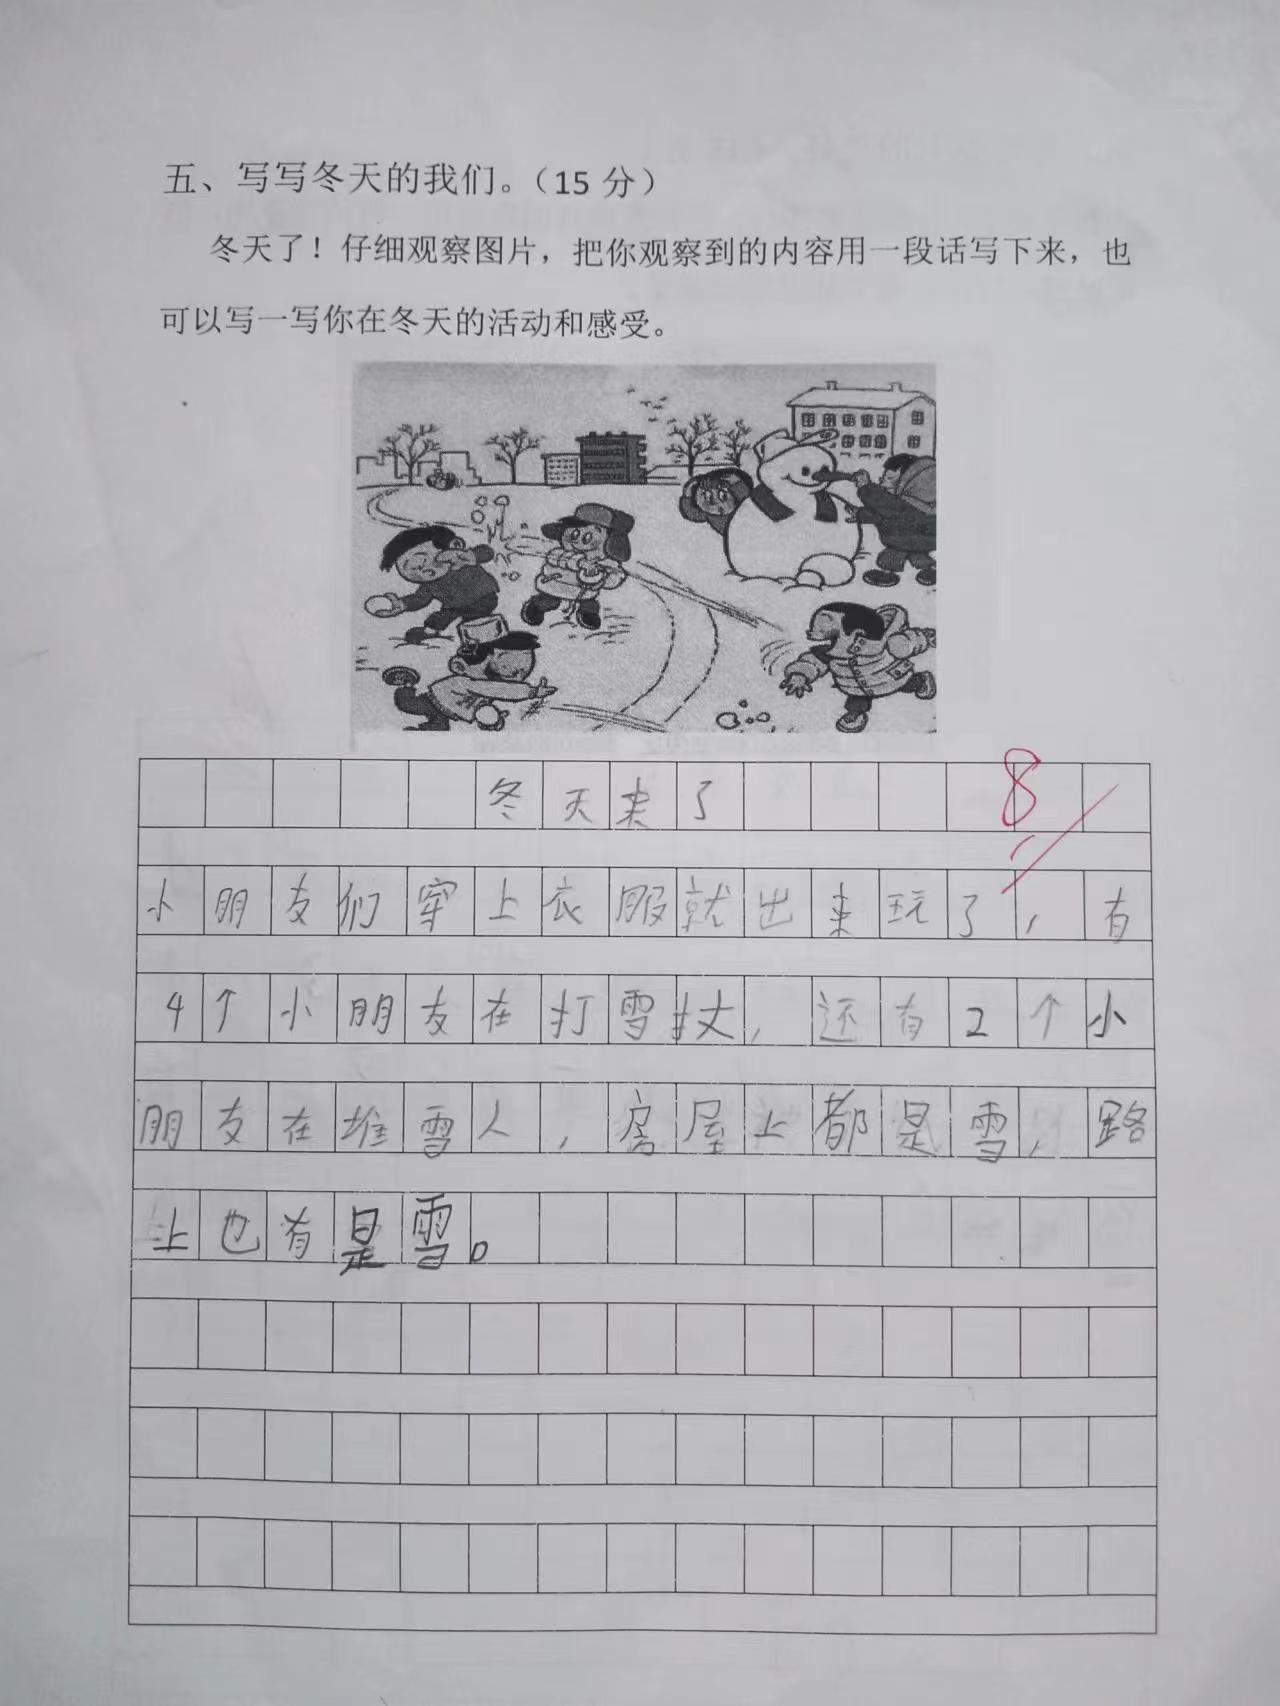 五、写写冬天的我们。（15 分）
冬天了！仔细观察图片，把你观察到的内容用一段话写下来，也
可以写一写你在冬天的活动和感受。
冬天来了
8
小朋友们穿上衣服就出来玩了，有
4个小朋友在打雪扙，还有2个小
朋友在堆雪人，房屋上都是雪，路
上也有是雪。